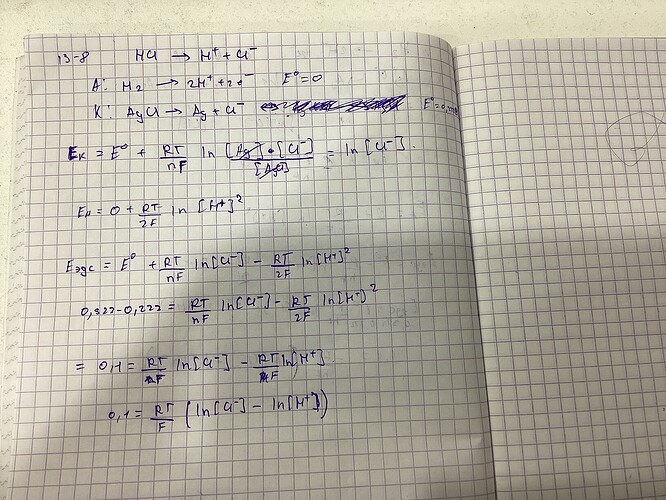 13-8 HCl → H⁺ + Cl⁻
A: H₂ → 2H⁺ + 2e⁻ E⁰ = 0
K: AgCl → Ag + Cl⁻ E⁰ = 0,
Eк = E⁰ + RT/nF ln [Ag]•[Cl⁻]/[AgCl] = ln [Cl⁻].
= 0 + RT/2F ln [H⁺]²
Eэдс = E⁰ + RT/nF ln[Cl⁻] - RT/2F ln[H⁺]²
0,322-0,222 = RT/nF ln[Cl⁻] - RT/2F ln[H⁺]²
= 0,1 = RT/F ln[Cl⁻] - RT/F ln[H⁺]
0,1 = RT/F (ln[Cl⁻] - ln[H⁺])